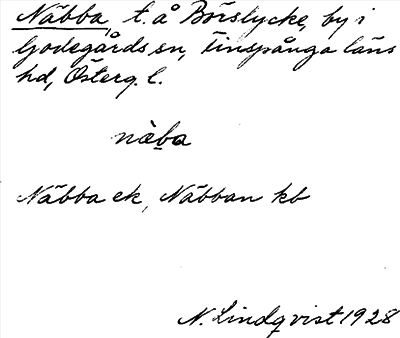 Näbba, t. å Börslycke, by i
Godegårds sn, Finspånga läns
hd, Österg. l.
nàb̲a
Näbba ek, Näbban kb
N. Lindqvist 1928